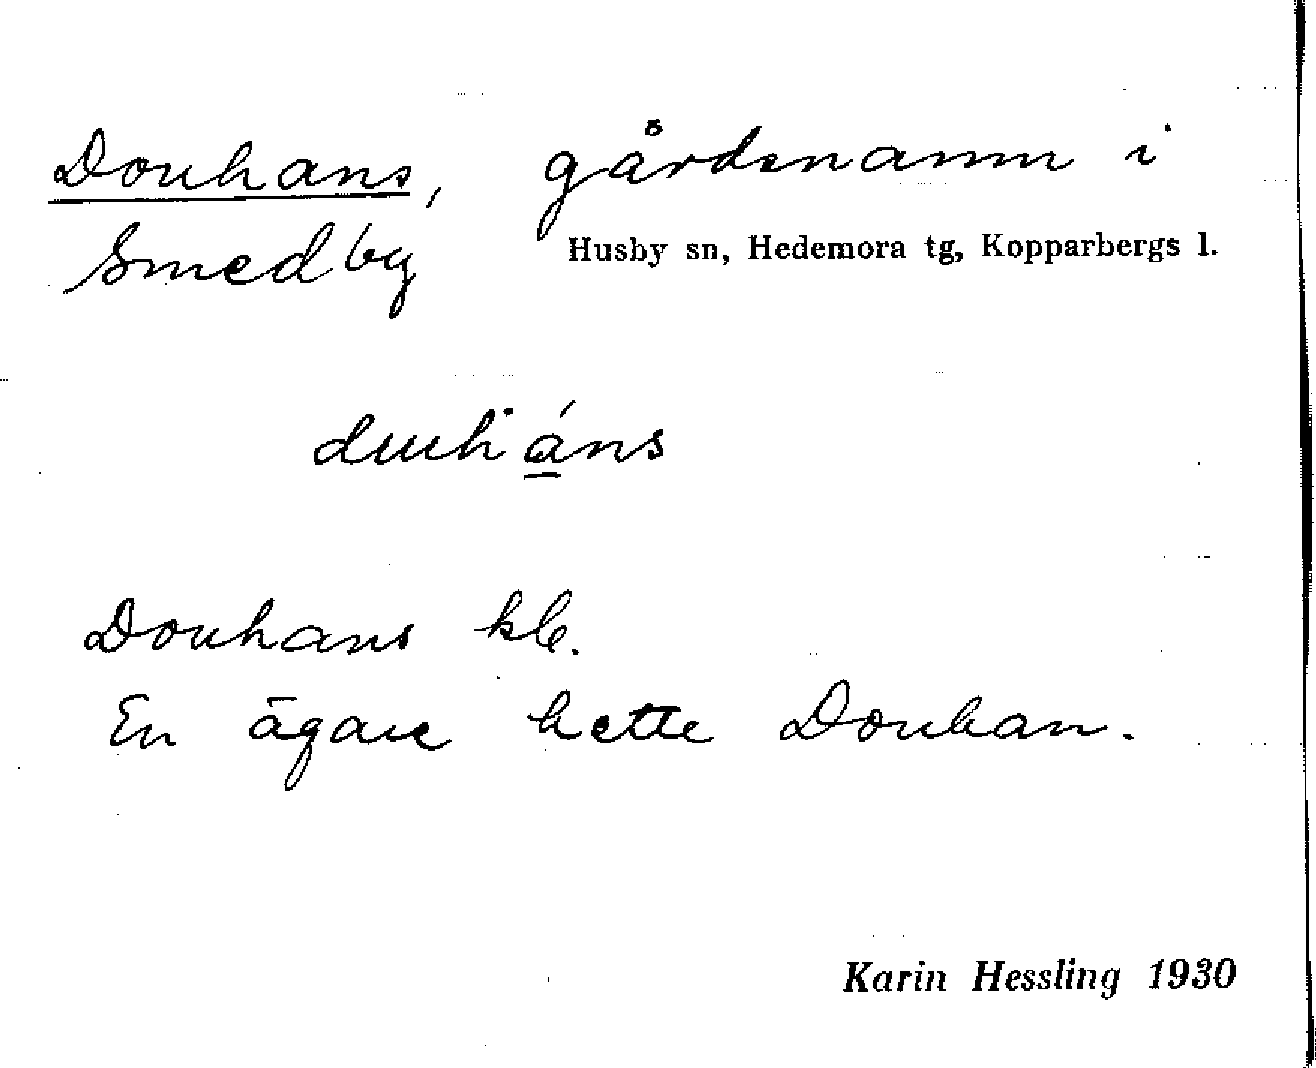 Douhans, gårdsnamn i
Smedby Husby sn, Hedemora tg, Kopparbergs l.
duháns
Douhans kb.
En ägare hette Douhan.
Karin Hessling 1930